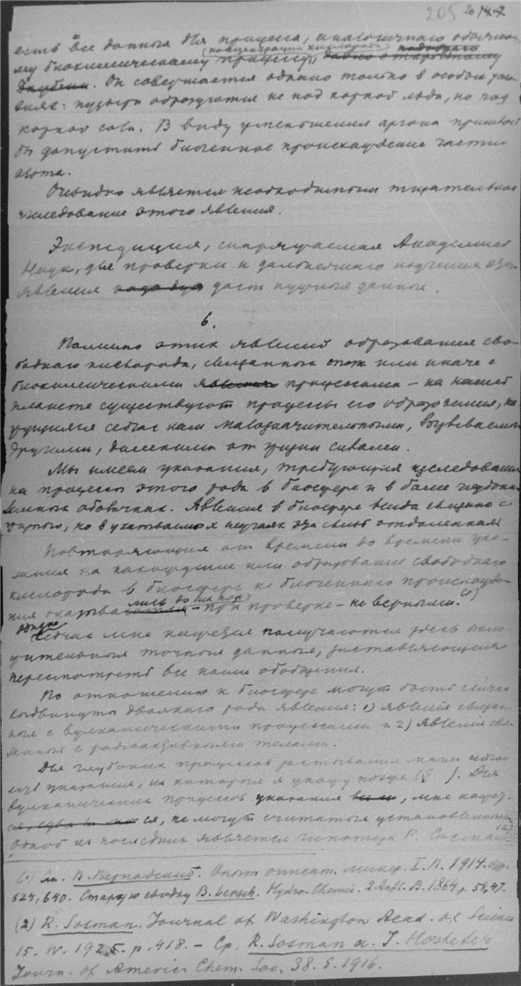 205 20
есть все данные для процесса, аналогичного обычно-
му биохимическому процессу,
концентрации кислорода
Он совершается однако только в особых усло-
виях: пузыри образуются не над коркой льда, но под
коркой льда. В виду уменьшения аргона пришлось
бы допустить биогенное происхождение части
азота.
Очевидно является необходимым тщательное
исследование этого явления.
Экспедиция, снаряжаемая Академией
Наук, для проверки и дальнейшего изучения этого
явления даст нужные данные.
6.
Помимо этих явлений образования сво-
бодного кислорода, связанных так или иначе с
биохимическими процессами – на нашей
планете существуют процессы его образования, ка-
жущиеся сейчас нам малозначительными, вызываемые
другими, далекими от жизни силами.
Мы имеем указания, требующие исследования
на процессы этого рода в биосфере и в более глубоких
земных оболочках. Явления в биосфере всегда связано с
жизнью, но в указываемых случаях эта связь отдаленная
Повторяющиеся от времени до времени ука-
зания на нахождение или образование свободного
кислорода в биосфере не биогенного происхожде-
ния оказывались до сих пор при проверке – не верными. (1)
Сейчас мне кажется получаются здесь поло-
жительные точные данные, заставляющие
пересмотреть все наши обобщения.
По отношению к биосфере могут быть сейчас
выдвинуты двоякого рода явления: 1) явления связан-
ные с вулканическими процессами и 2) явления свя-
занные с радиоактивными телами.
Для глубоких процессов застывания магм сейчас
есть указания, на которые я укажу позже (§ ). Для
вулканических процессов указания, мне кажет-
ся, не могут считаться установленными
Одной из последних является гипотеза Р. Сосмана (2)
(1) См. В. Вернадский. Опыт описат. минер. I. П. 1914. стр.
524, 640. Старую сводку В. Hydro-Chemie. 2 Aufl. B. 1864, p. 54, 47.
(2) R. Sosman. Journal of Washington Acad. of Science
15. W. 1925. p. 418. – Ср. R. Sosman a. J. Hostetter
Journ. of Americ Chem. Soc. 38. 5. 1916.